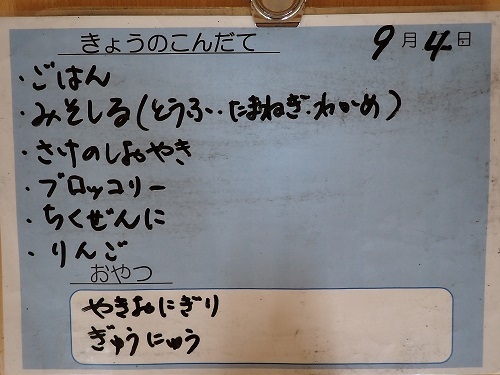 きょうのこんだて 9月4日
・ごはん
・みそしる(とうふ・たまねぎ・わかめ)
・さけのしおやき
・ブロッコリー
・ちくぜんに
・りんご
おやつ
やきおにぎり
ぎゅうにゅう